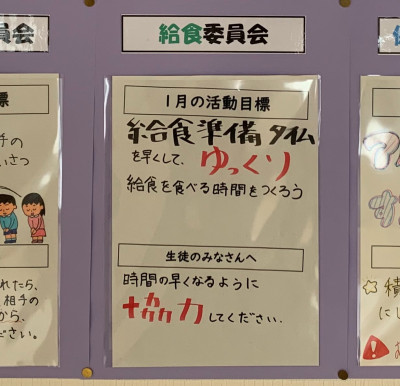 員会
標
手の
いさつ
れたら、
相手の
から、
ださい。
給食委員会
1月の活動目標
給食準備タイム
を早くして、ゆっくり
給食を食べる時間をつくろう
生徒のみなさんへ
時間の早くなるように
協力してください.
積
にし